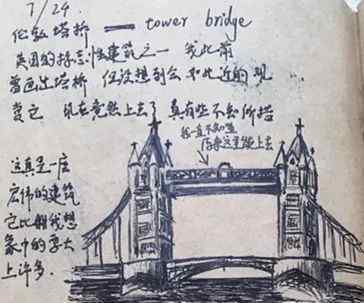 7/24.
伦敦塔桥 —— tower bridge
英国的标志性建筑之一 我此前
曾画过塔桥 但没想到会如此近的观
赏它 现在竟然上去了 真有些不知所措
我一直不知道
原来这里能上去
这真是一座
宏伟的建筑
它比我想
象中的要大
上许多.